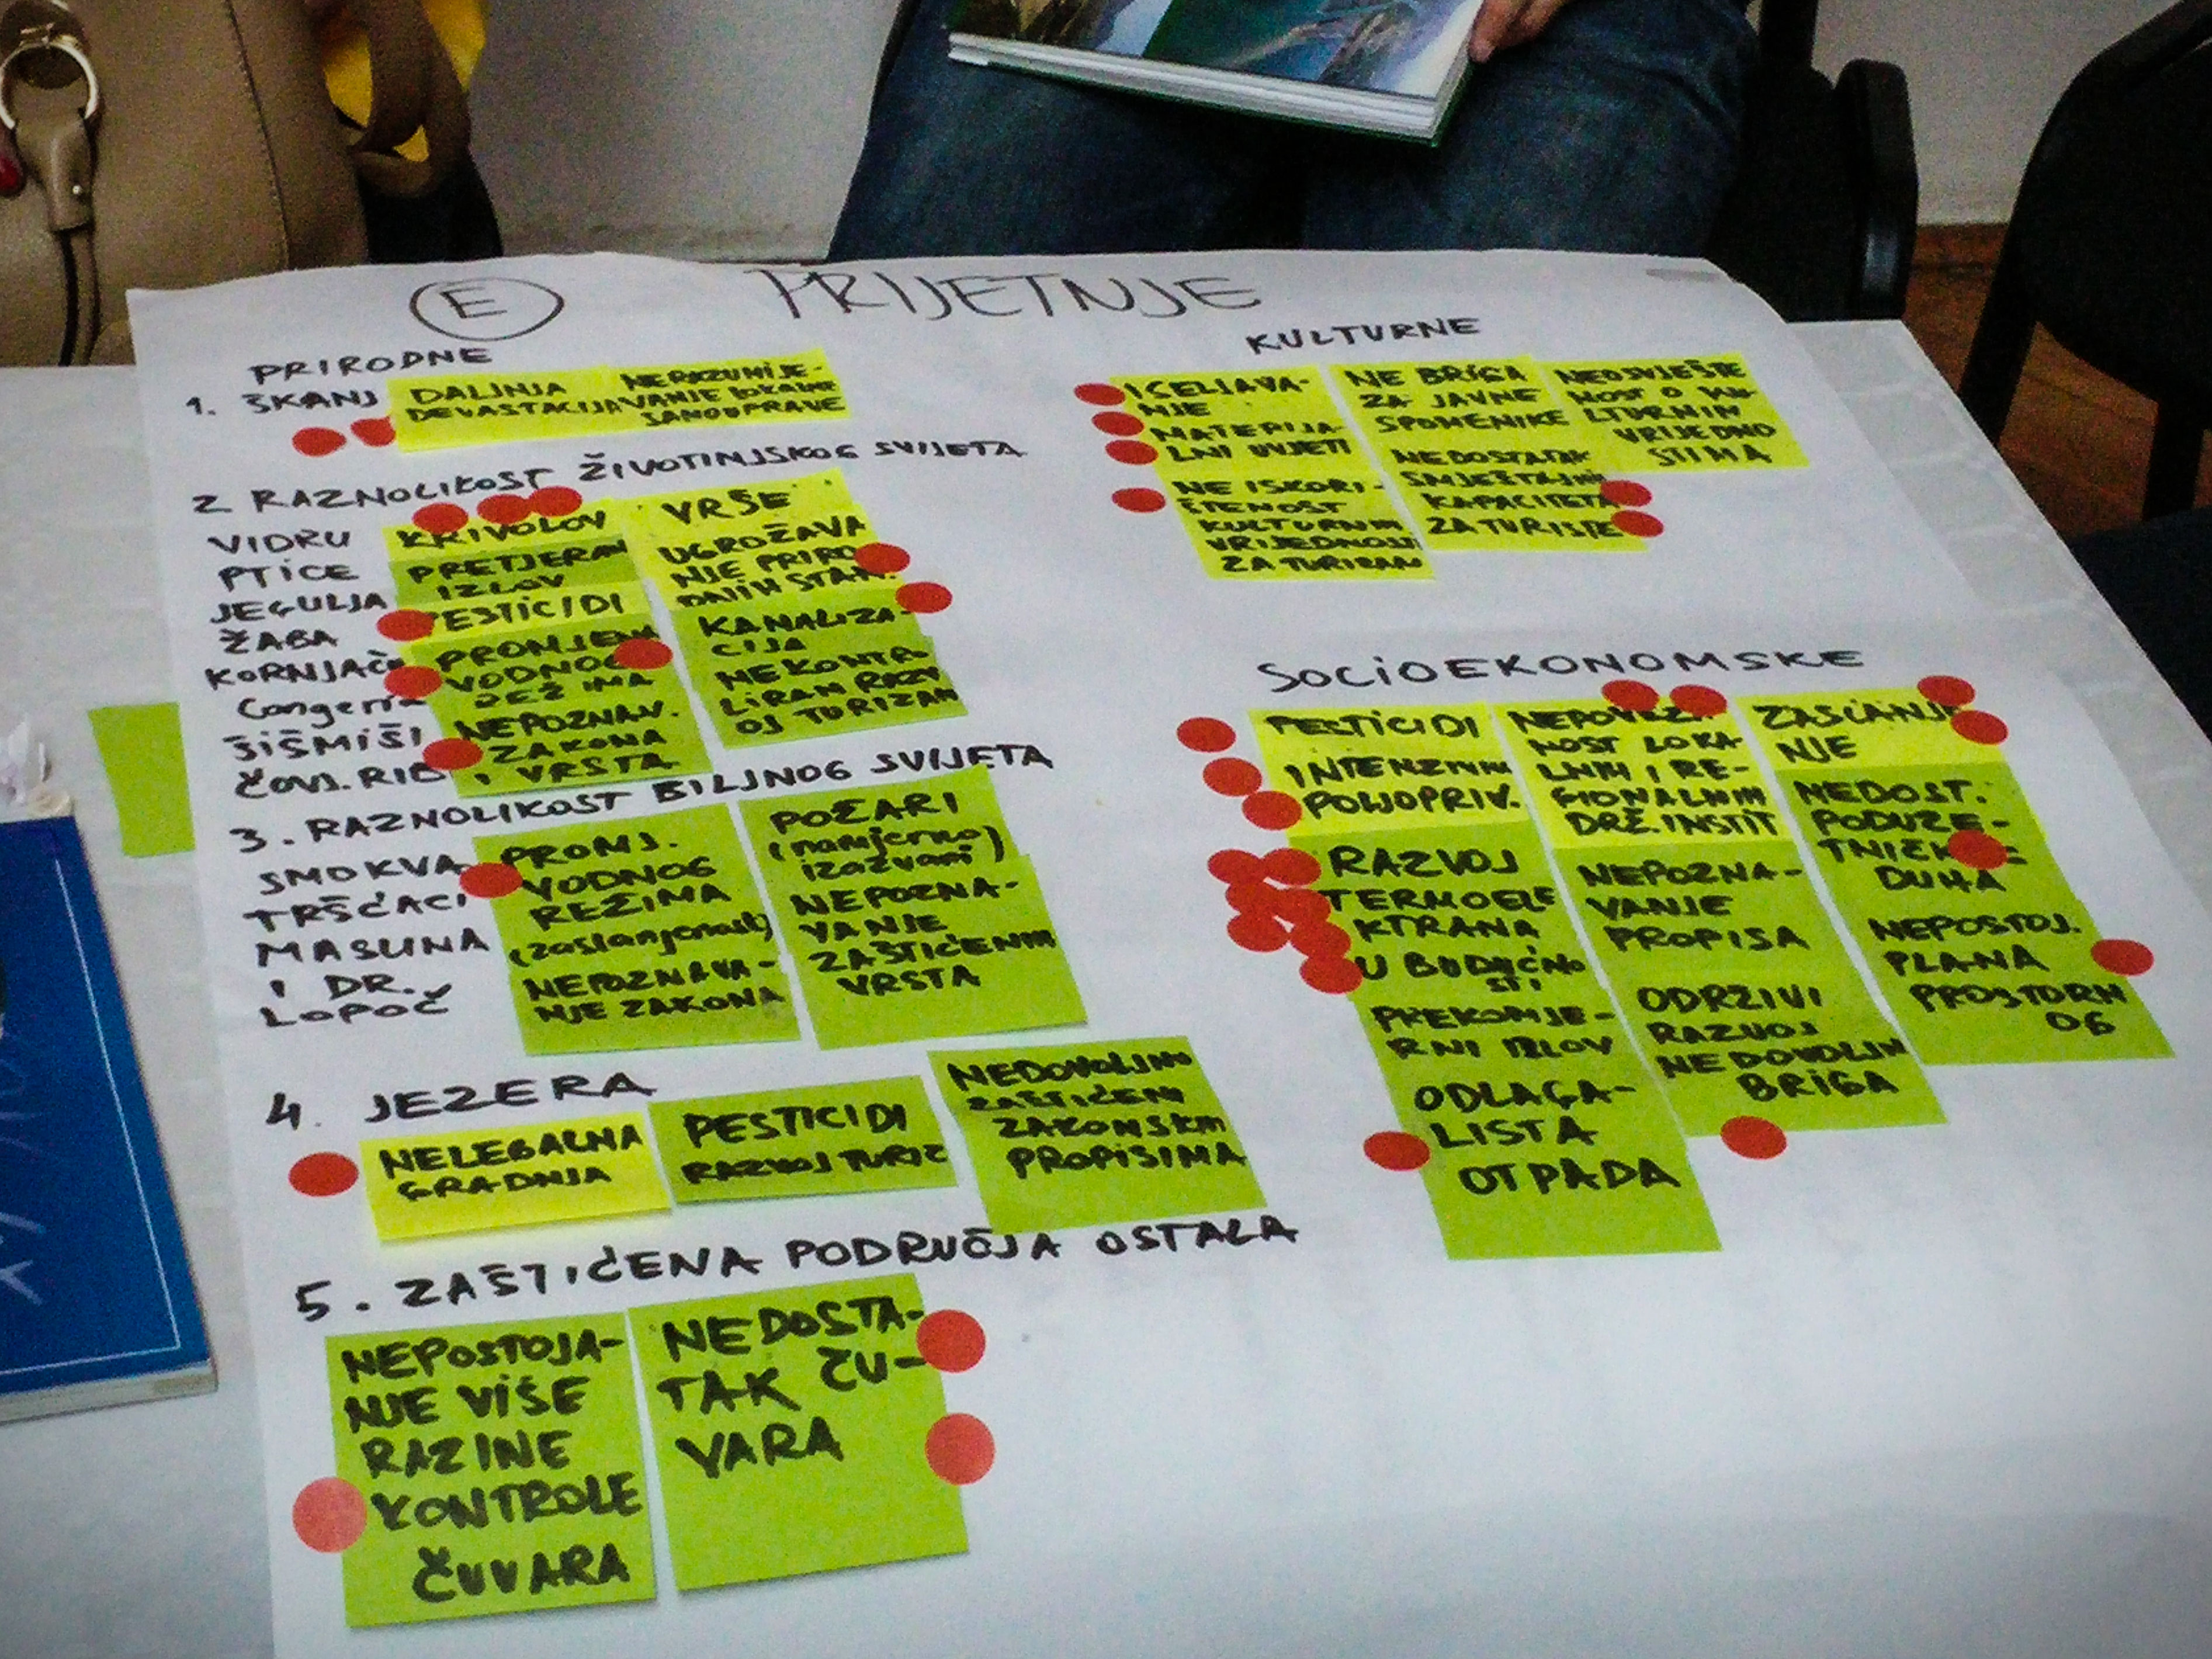 E
PRIJETNJE
PRIRODNE
1. ŠKANJ
DALJNJA
DEVASTACIJA
NERAZUMIJE-
VANJE LOKALNE
SAMOUPRAVE
2 RAZNOLIKOST ŽIVOTINJSKOG SVIJETA
VIDRU
PTICE
JEGULJA
ŽABA
KORNJAČE
Congeria
ŠIŠMIŠI
ČOVJ. RIB
KRIVOLOV
PRETJERAN
IZLOV
PESTICIDI
PROMJENA
VODNOG
REŽIMA
NEPOZNAV.
ZAKONA
I VRSTA
VRŠE
UGROŽAVA
NJE PRIRO
DNIH STAN.
KANALIZA-
CIJA
NEKONTRO
LIRAN RAZV
OJ TURIZAM
3. RAZNOLIKOST BILJNOG SVIJETA
SMOKVA
TRŠĆACI
MASLINA
I DR.
LOPOČ
PROMJ.
VODNOG
REŽIMA
(zaslanjenost)
NEPOZNAVA-
NJE ZAKONA
POŽARI
(namjerno
izazvani)
NEPOZNA-
VANJE
ZAŠTIĆENIH
VRSTA
4. JEZERA
NELEGALNA
GRADNJA
PESTICIDI
RAZVOJ TURIZ
NEDOVOLJNO
ZAŠTIĆENI
ZAKONSKIM
PROPISIMA
5. ZAŠTIĆENA PODRUČJA OSTALA
NEPOSTOJA-
NJE VIŠE
RAZINE
KONTROLE
ČUVARA
NEDOSTA-
TAK ČU-
VARA
KULTURNE
ISELJAVA-
NJE
MATERIJA-
LNI UVJETI
NE ISKORI-
ŠTENOST
KULTURNIH
VRIJEDNOSTI
ZA TURIZAM
NE BRIGA
ZA JAVNE
SPOMENIKE
NEDOSTATAK
SMJEŠTAJNIH
KAPACITETA
ZA TURISTE
NEOSVJEŠTE
NOST O KU
LTURNIM
VRIJEDNO
STIMA
SOCIOEKONOMSKE
PESTICIDI
INTENZIVNA
POLJOPRIV.
RAZVOJ
TERMOELE
KTRANA
U BUDUĆNO
STI
PREKOMJE-
RNI IZLOV
ODLAGA-
LISTA
OTPADA
NEPOVEZA
NOST LOKA-
LNIH I RE-
GIONALNIH
DRŽ. INSTIT
NEPOZNA-
VANJE
PROPISA
ODRŽIVI
RAZVOJ
NEDOVOLJN
BRIGA
ZASLANJE
NJE
NEDOST.
PODUZE-
TNIČK
DUHA
NEPOSTOJ.
PLANA
PROSTORN
OG